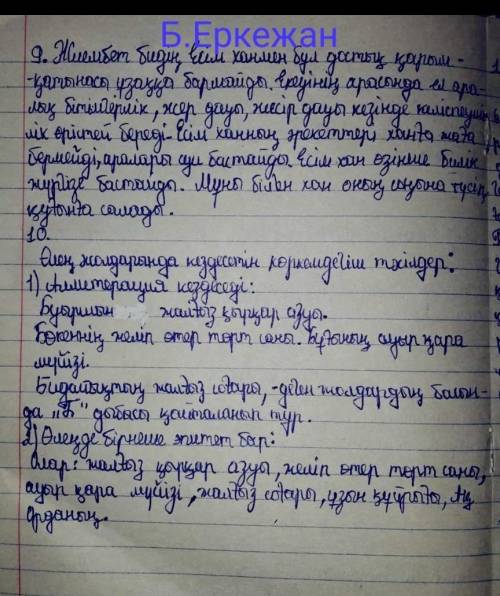 Б.Еркежан
9. Жиембет бидің Есім ханмен бұл достық қарым-
-қатынасы ұзаққа бармайды. Екеуінің арасында ел ара-
лық бітімгерлік, жер дауы, жесір дауы кезінде келіспеуші-
лік өрістей береді. Есім ханның әрекеттері ханға жаға
бермейді, аралары суи бастайды. Есім хан өзінше билік
жүргізе бастайды. Мұны білген хан оның соңына түсіп,
қуғынға салады.
10.
Өлең жолдарында кездесетін көркемдегіш тәсілдер:
1) Аллитерация кездеседі:
Буыршын жалғыз қырқар азуы.
Бөкеннің желіп өтер төрт саны. Бұғының ауыр қара
мүйізі.
Бидайықтың жалғыз совары, -деген жолдардың басын-
да "Б" дыбысы қайталанып тұр.
2) Өлеңде бірнеше эпитет бар:
Олар: жалғыз қырқар азуы, желіп өтер төрт саны,
ауыр қара мүйізі, жалғыз совары, ұзын құйрығы, Ақ
Орданың.